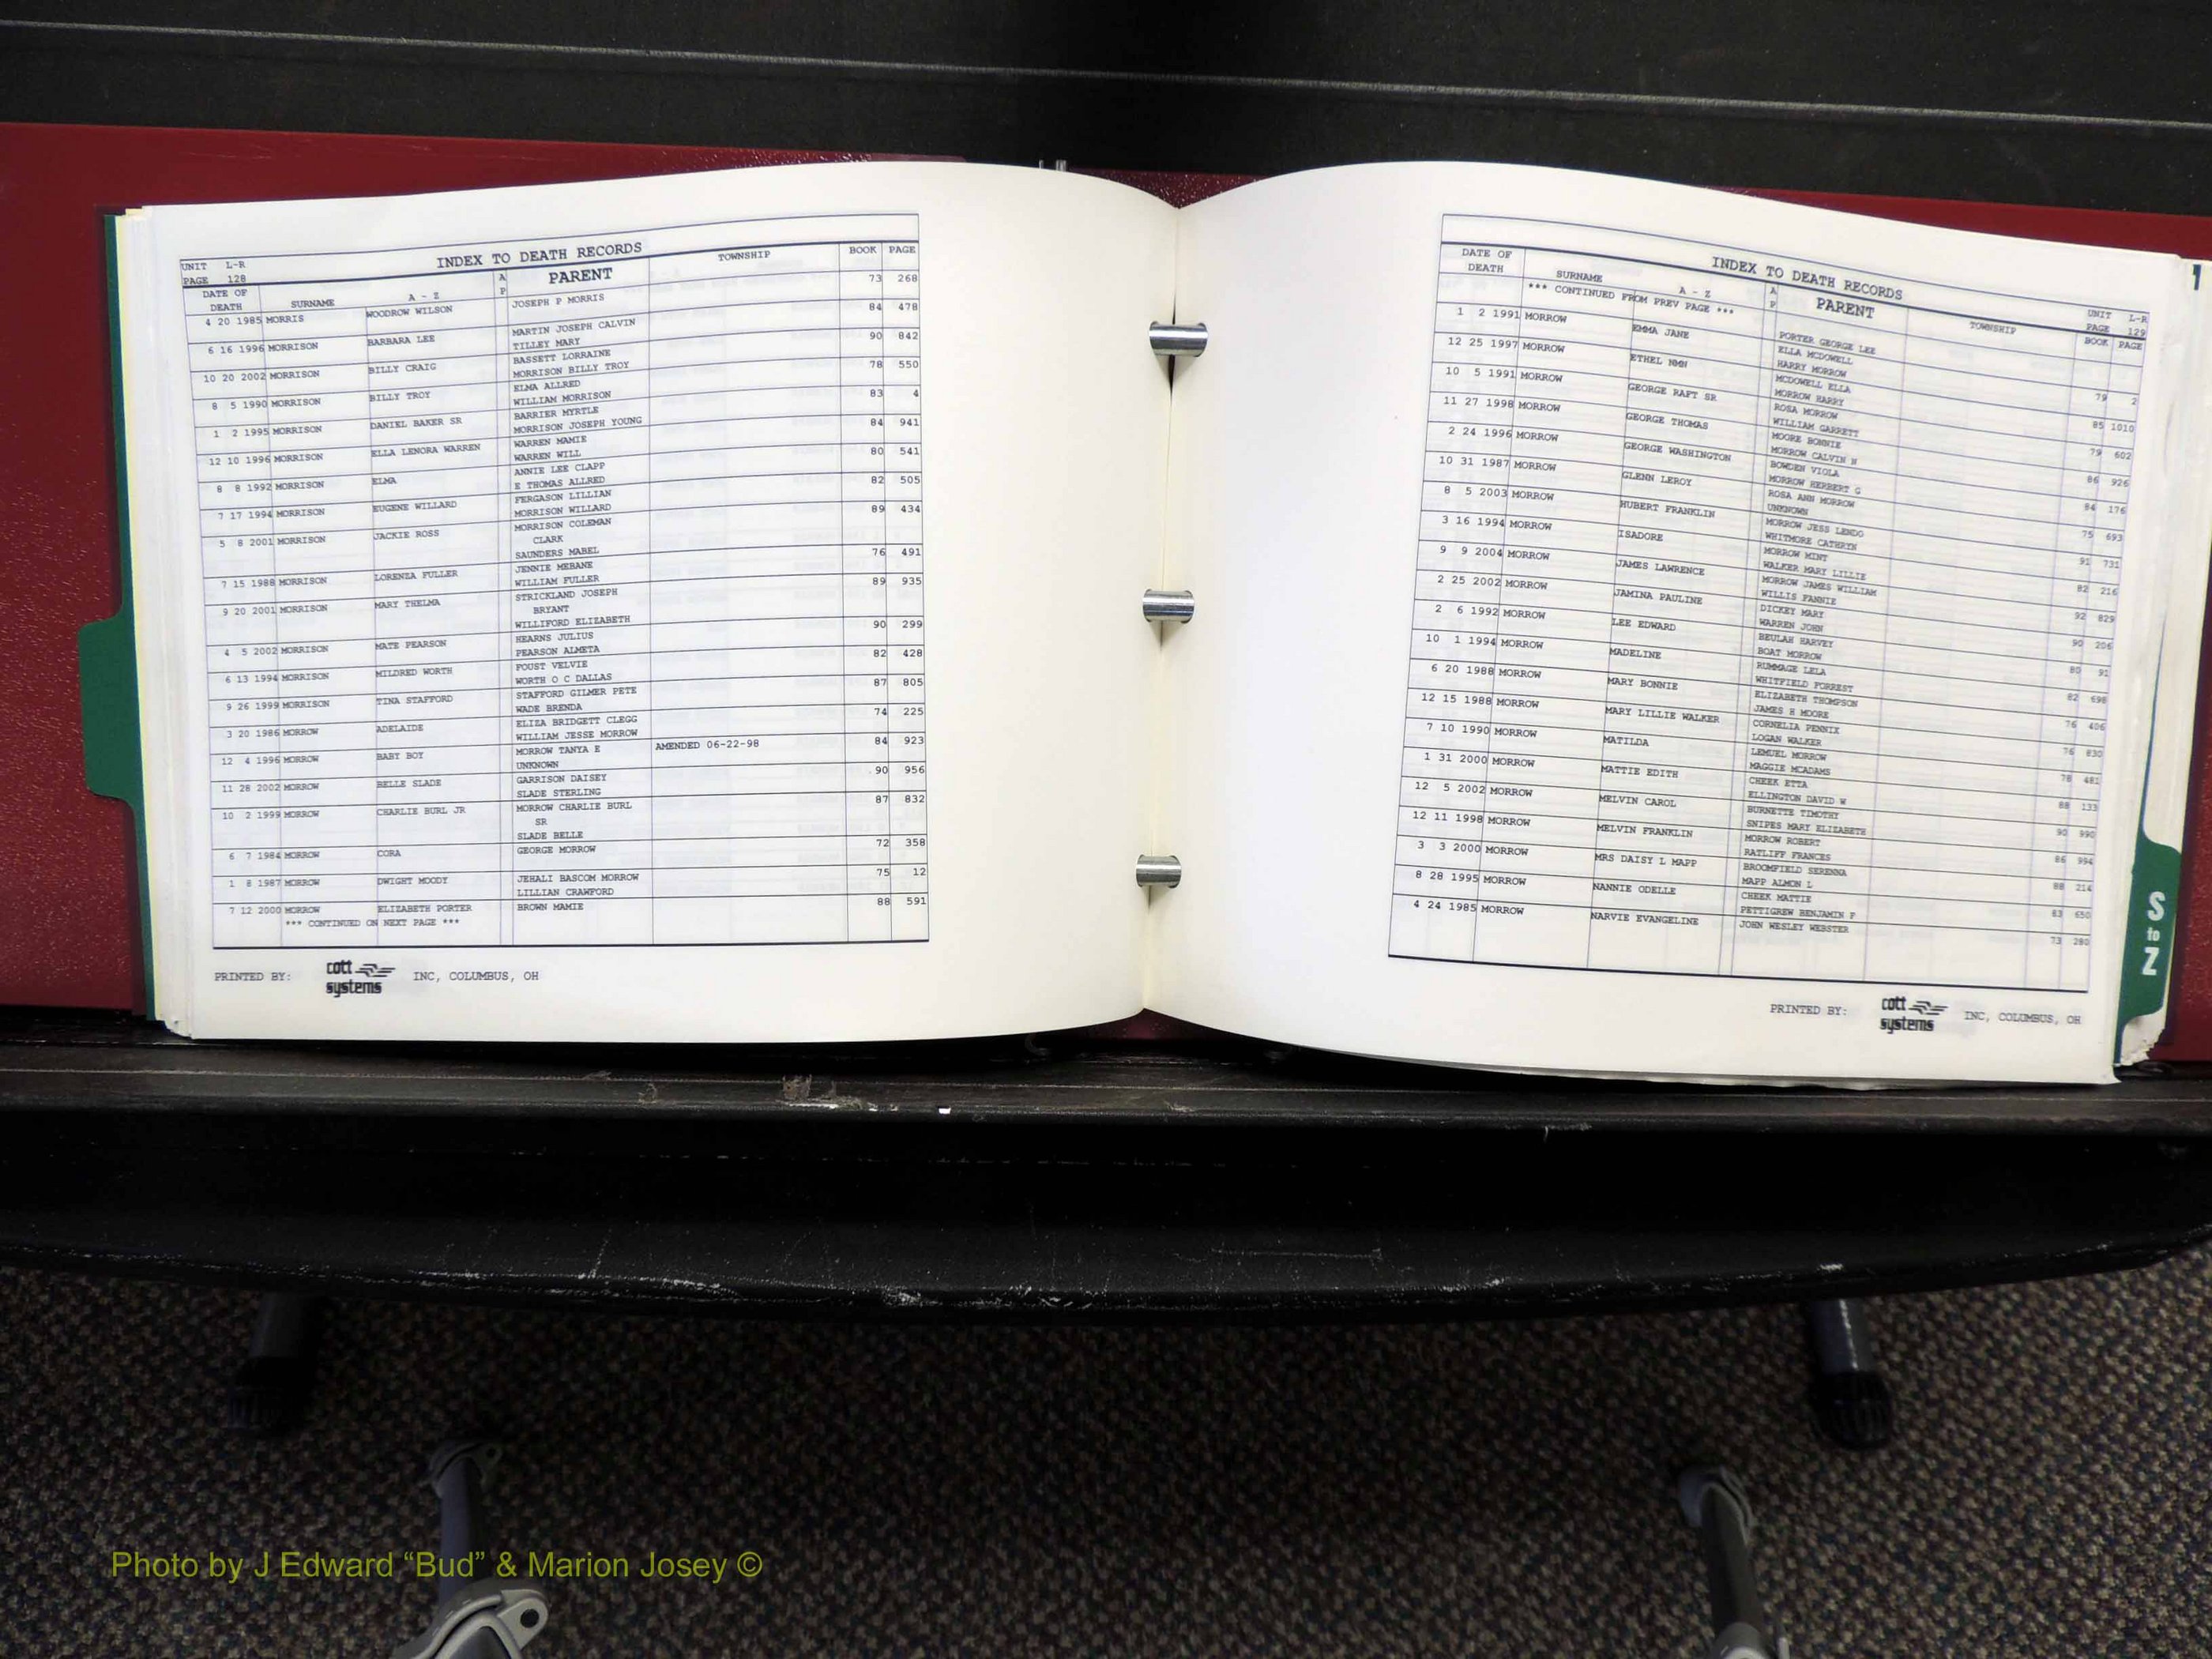 UNIT L-R INDEX TO DEATH RECORDS
PAGE 128
DATE OF DEATH SURNAME A - Z AP PARENT TOWNSHIP BOOK PAGE
4 20 1985 MORRIS WOODROW WILSON JOSEPH P MORRIS 73 268
6 16 1996 MORRISON BARBARA LEE MARTIN JOSEPH CALVIN 84 478
TILLEY MARY
10 20 2002 MORRISON BILLY CRAIG BASSETT LORRAINE 90 842
MORRISON BILLY TROY
8 5 1990 MORRISON BILLY TROY ELMA ALLRED 78 550
WILLIAM MORRISON
1 2 1995 MORRISON DANIEL BAKER SR BARRIER MYRTLE 83 4
MORRISON JOSEPH YOUNG
12 10 1996 MORRISON ELLA LENORA WARREN WARREN MAMIE 84 941
WARREN WILL
8 8 1992 MORRISON ELMA ANNIE LEE CLAPP 80 541
E THOMAS ALLRED
7 17 1994 MORRISON EUGENE WILLARD FERGASON LILLIAN 82 505
MORRISON WILLARD
5 8 2001 MORRISON JACKIE ROSS MORRISON COLEMAN 89 434
CLARK
SAUNDERS MABEL
7 15 1988 MORRISON LORENZA FULLER JENNIE MEBANE 76 491
WILLIAM FULLER
9 20 2001 MORRISON MARY THELMA STRICKLAND JOSEPH 89 935
BRYANT
WILLIFORD ELIZABETH
4 5 2002 MORRISON MATE PEARSON HEARNS JULIUS 90 299
PEARSON ALMETA
6 13 1994 MORRISON MILDRED WORTH FOUST VELVIE 82 428
WORTH O C DALLAS
9 26 1999 MORRISON TINA STAFFORD STAFFORD GILMER PETE 87 805
WADE BRENDA
3 20 1986 MORROW ADELAIDE ELIZA BRIDGETT CLEGG 74 225
WILLIAM JESSE MORROW
12 4 1996 MORROW BABY BOY MORROW TANYA E AMENDED 06-22-98 84 923
UNKNOWN
11 28 2002 MORROW BELLE SLADE GARRISON DAISEY 90 956
SLADE STERLING
10 2 1999 MORROW CHARLIE BURL JR MORROW CHARLIE BURL 87 832
SR
SLADE BELLE
6 7 1984 MORROW CORA GEORGE MORROW 72 358
1 8 1987 MORROW DWIGHT MOODY JEHALI BASCOM MORROW 75 12
LILLIAN CRAWFORD
7 12 2000 MORROW ELIZABETH PORTER BROWN MAMIE 88 591
*** CONTINUED ON NEXT PAGE ***
PRINTED BY: cott systems INC, COLUMBUS, OH
INDEX TO DEATH RECORDS UNIT L-R
PAGE 129
DATE OF DEATH SURNAME A - Z AP PARENT TOWNSHIP BOOK PAGE
*** CONTINUED FROM PREV PAGE ***
PORTER GEORGE LEE
1 2 1991 MORROW EMMA JANE ELLA MCDOWELL 79 2
HARRY MORROW
12 25 1997 MORROW ETHEL NMN MCDOWELL ELLA 85 1010
MORROW HARRY
10 5 1991 MORROW GEORGE RAFT SR ROSA MORROW 79 602
WILLIAM GARRETT
11 27 1998 MORROW GEORGE THOMAS MOORE BONNIE 86 926
MORROW CALVIN N
2 24 1996 MORROW GEORGE WASHINGTON BOWDEN VIOLA 84 176
MORROW HERBERT G
10 31 1987 MORROW GLENN LEROY ROSA ANN MORROW 75 693
UNKNOWN
8 5 2003 MORROW HUBERT FRANKLIN MORROW JESS LENDO 91 731
WHITMORE CATHRYN
3 16 1994 MORROW ISADORE MORROW MINT 82 216
WALKER MARY LILLIE
9 9 2004 MORROW JAMES LAWRENCE MORROW JAMES WILLIAM 92 829
WILLIS FANNIE
2 25 2002 MORROW JAMINA PAULINE DICKEY MARY 90 206
WARREN JOHN
2 6 1992 MORROW LEE EDWARD BEULAH HARVEY 80 91
BOAT MORROW
10 1 1994 MORROW MADELINE RUMMAGE LELA 82 698
WHITFIELD FORREST
6 20 1988 MORROW MARY BONNIE ELIZABETH THOMPSON 76 406
JAMES H MOORE
12 15 1988 MORROW MARY LILLIE WALKER CORNELIA PENNIX 76 830
LOGAN WALKER
7 10 1990 MORROW MATILDA LEMUEL MORROW 78 481
MAGGIE MCADAMS
1 31 2000 MORROW MATTIE EDITH CHEEK ETTA 88 133
ELLINGTON DAVID W
12 5 2002 MORROW MELVIN CAROL BURNETTE TIMOTHY 90 990
SNIPES MARY ELIZABETH
12 11 1998 MORROW MELVIN FRANKLIN MORROW ROBERT 86 994
RATLIFF FRANCES
3 3 2000 MORROW MRS DAISY L MAPP BROOMFIELD SERENNA 88 214
MAPP ALMON L
8 28 1995 MORROW NANNIE ODELLE CHEEK MATTIE 83 650
PETTIGREW BENJAMIN F
4 24 1985 MORROW NARVIE EVANGELINE JOHN WESLEY WEBSTER 73 280
PRINTED BY: cott systems INC, COLUMBUS, OH
S
to
Z
Photo by J Edward “Bud” & Marion Josey ©